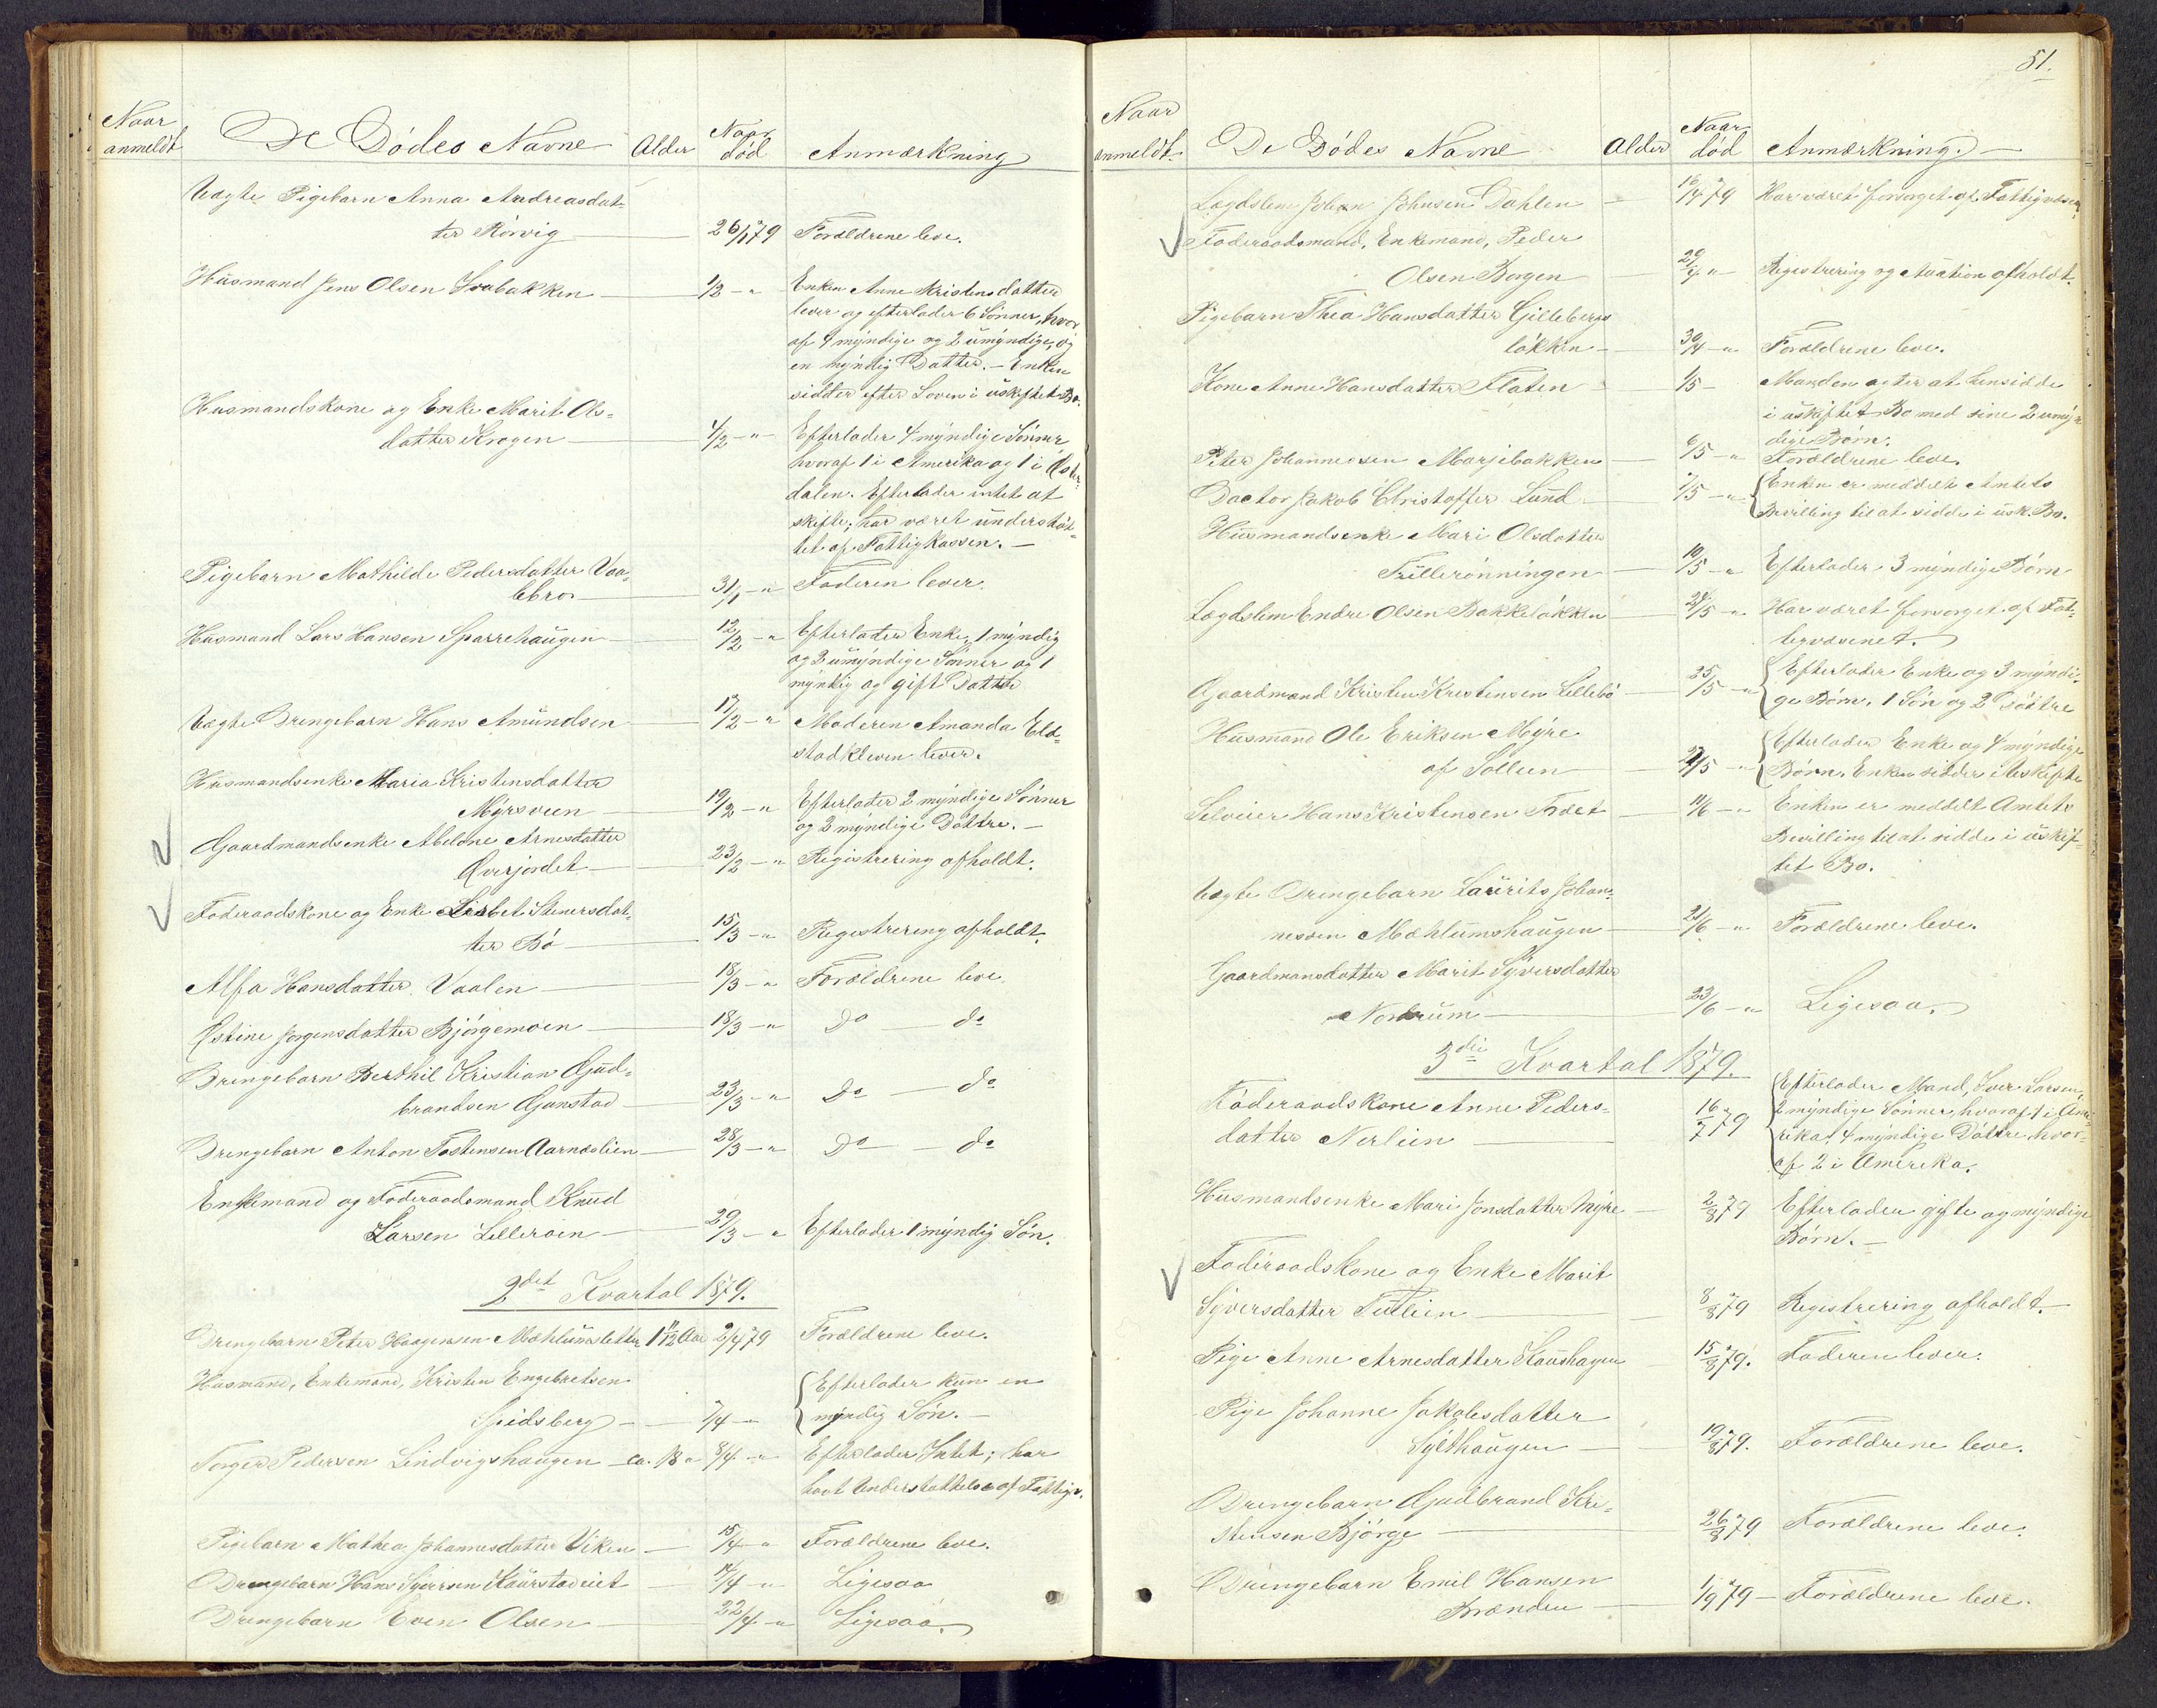 Naar
anmeldt
De Dödes Navne
Alder
Naar
död
Anmærkning
Uægte Pigebarn Anna Andreasdat-
ter Rörvig 26/1 79 Forældrene leve.
Husmand Jens Olsen 1/2 - " Enken Anne Kristensdatter
lever og efterlader 6 Sönner, hvor
af 4 myndige og 2 umyndige, og
en myndig Datter. - Enken
sidder efter Loven i uskiftet Bo.
Husmandskone og Enke Marit Ols-
datter Krogen 4/2 - " Efterlader 4 myndige Sönner
hvoraf 1 i Amerika og 1 i Öster-
dalen. Efterlader intet at
skifte; har været understöt-
tet af Fattigkassen. -
Pigebarn Mathilde Pedersdatter Vaa-
lebro 31/1 - " Faderen lever.
Husmand Lars Hansen Sparrehaugen 12/2 - " Efterlader Enke, 1 myndig
og 3 umyndige Sönner og 1
myndig og gift Datter
Uægte Drengebarn Hans Amundsen 17/2 - " Moderen Amanda Eld-
stadkleven lever.
Husmandsenke Maria Kristensdatter
Myrsveen 19/2 - " Efterlader 2 myndige Sönner
og 3 myndige Döttre. -
Gaardmandsenke Abelone Arnesdatter
Överjordet 23/2 - " Registrering afholdt.
Föderaadskone og Enke Lisbet Stenersdat-
ter Bö 15/3 - " Registrering afholdt.
Alfa Hansdatter Vaalen 18/3 - " Forældrene leve
Östine Jörgensdatter Björgemoen 18/3 - " Do do
Drengebarn Berthil Kristian Gud-
brandsen Gunstad 23/3 - " Do - do
Drengebarn Anton Tostensen Aarnæslien 28/3 - " Do - do
Enkemand og Föderaadsmand Knud
Larsen Lilleroen 29/3 - " Efterlader 1 myndig Sön.
2det Kvartal 1879.
Drengebarn Peter Haagensen Mæhlumsletten 1 11/12 Aar 2/4 79 Forældrene leve.
Husmand, Enkemand, Kristen Engebretsen
Spidsberg 7/4 - " Efterlader kun en
myndig Sön. -
Torger Pedersen Lindvigshaugen ca. 18 " 8/4 - " Efterlader Intet; har
havt Understöttelse af Fattigv.
Pigebarn Mathea Johannesdatter Viken 15/4 - " Forældrene leve.
Drengebarn Hans Syversen Kaurstadeiet 17/4 - " Ligesaa
Drengebarn Even Olsen 22/4 - " Ligesaa.
51.
Naar
anmeldt
De Dödes Navne
Alder
Naar
död
Anmærkning. -
Lægdslem Johan Johnsen Dahlen 16/4 79 Har været forsörget af Fattigvæsen
Föderaadsmand, Enkemand, Peder
Olsen Borgen 29/4 " Registrering og Auktion afholdt.
Pigebarn Thea Hansdatter Gillebergs
lökken 30/4 - " Forældrene leve.
Kone Anne Hansdatter Flaten 1/5 - Manden agter at hensidde
i uskiftet Bo med sine 2 umyn
dige Börn.
Peter Johannessen Marjebakken 6/5 - " Forældrene leve.
Doctor Jakob Christoffer Lund 7/5 - " Enken er meddelt Amtets
Bevilling til at sidde i usk. Bo.
Husmandsenke Mari Olsdatter
Trullerönningen 10/5 - " Efterlader 3 myndige Börn
Lægdslem Endre Olsen Bakkelökken 24/5 - " Har været forsörget af Fat-
tigvæsenet.
Gaardmand Kristen Kristensen Lillebö 25/5 - " Efterlader Enke og 3 myndi-
ge Börn, 1 Sön og 2 Döttre
Husmand Ole Eriksen Myre
af Sollien 27/5 - " Efterlader Enke og 4 myndige
Börn. Enken sidder i Uskifte
Selveier Hans Kristensen 11/6 - " Enken er meddelt Amtets
Bevilling til at sidde i uskif-
tet Bo.
Uægte Drengebarn Laurits Johan-
nessen Mæhlumshaugen 21/6 - " Forældrene leve.
Gaardmansdatter Marit Syversdatter
Nordrum 23/6 - " Ligesaa.
3die Kvartal 1879.
Föderaadskone Anne Peders-
datter Nerlien 16/7 79 Efterlader Mand, Iver Larsen,
2 myndige Sönner, hvoraf 1 i Ame-
rika, 4 myndige Döttre, hvor-
af 2 i Amerika.
Husmandsenke Mari Jonsdatter Myre 2/8 79 Efterlader gifte og myndige
Börn. -
Föderaadskone og Enke Marit
Syversdatter 8/8 79 Registrering afholdt. -
Pige Anne Arnesdatter 15/8 79. Faderen lever.
Pige Johanne Jakobsdatter
Sylthaugen 19/8 79. Forældrene leve.
Drengebarn Gudbrand Kri-
stensen Björge 26/8 79 Forældrene leve.
Drengebarn Emil Hansen
Brænden 1/9 79 - Forældrene leve.